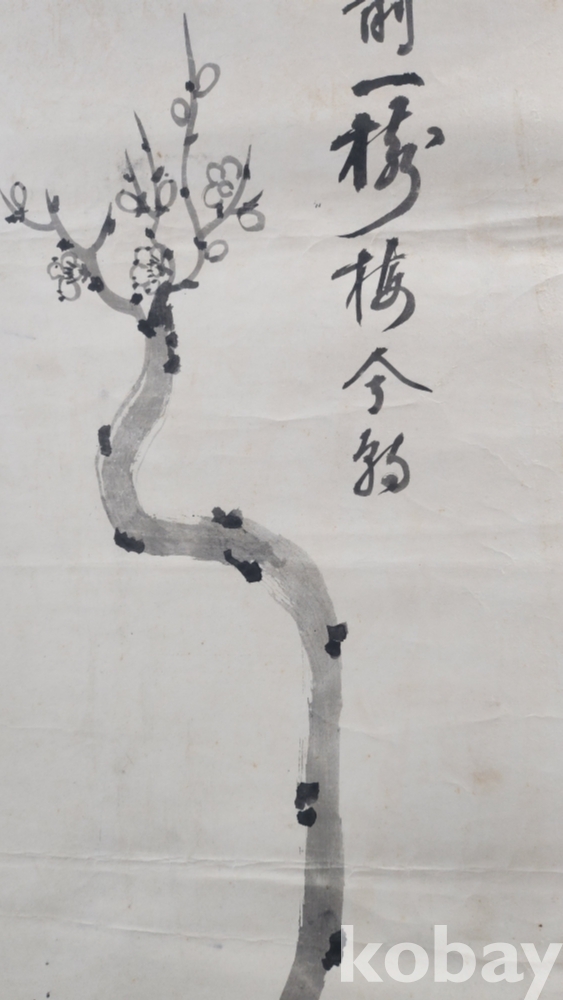 前一樹梅今朝
kobay